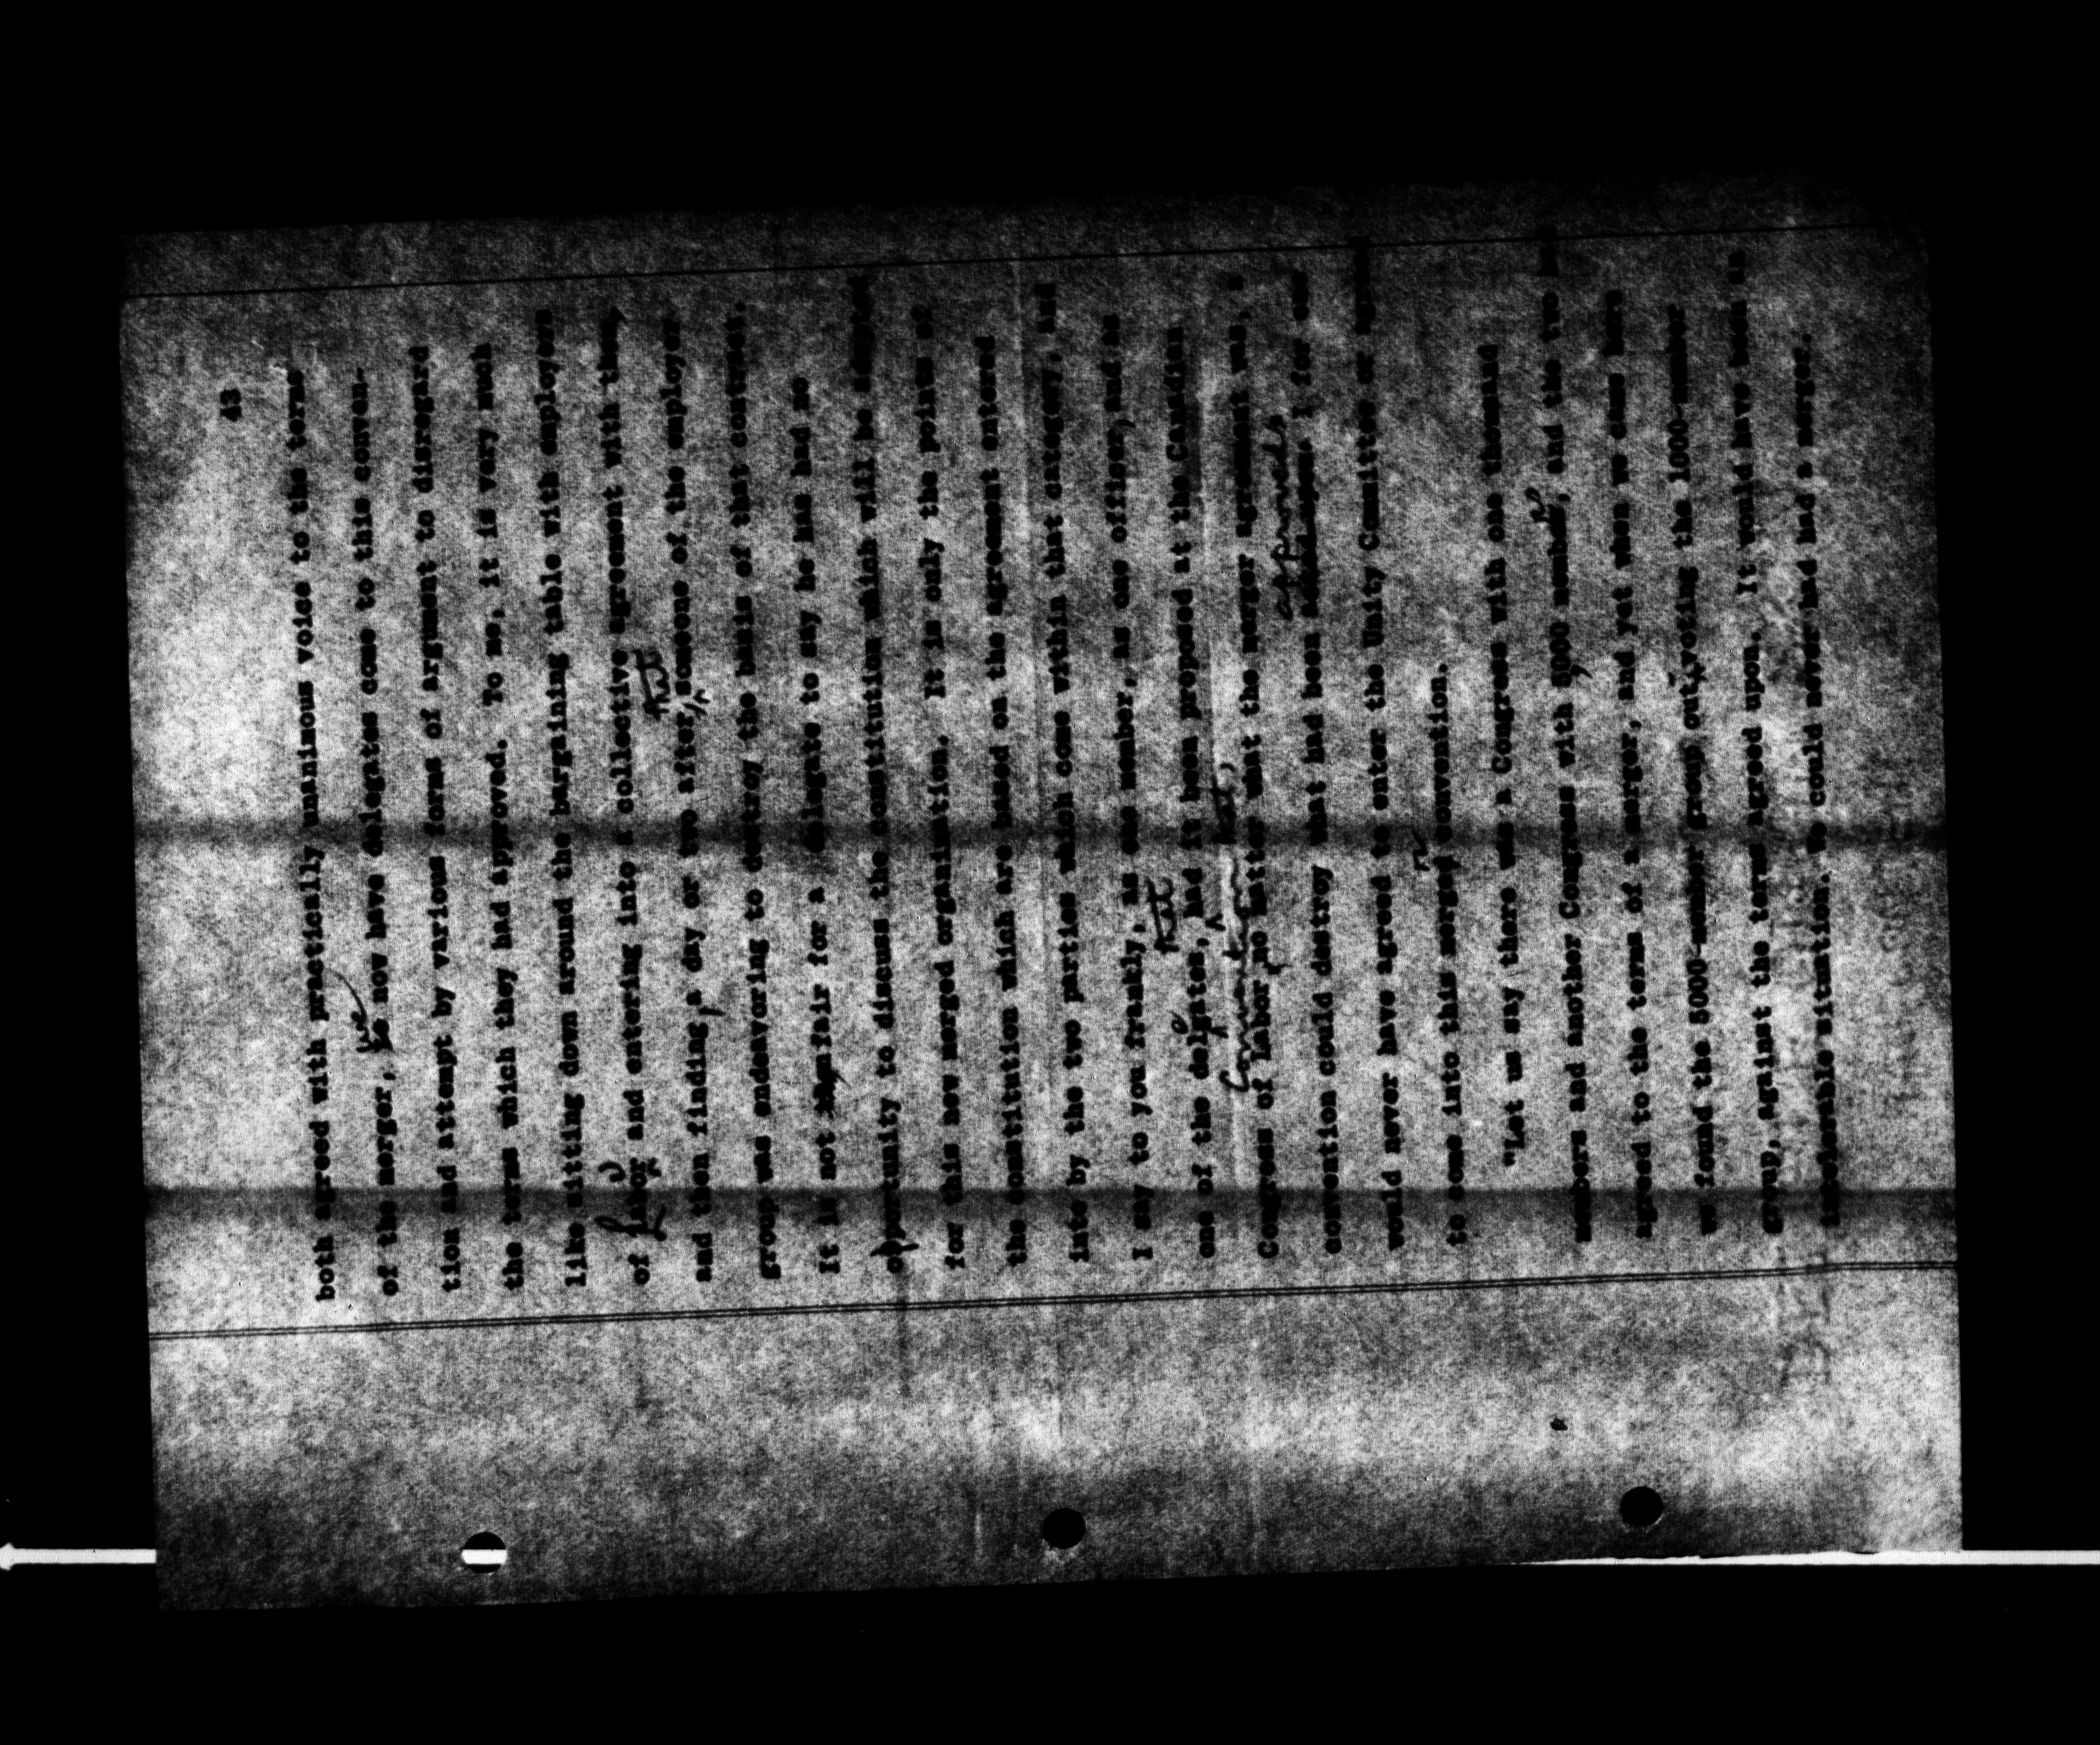 43
both agreed with practically unanimous voice to the terms
of the merger, we now have delegates come to this conven-
tion and attempt by various forms of argument to disregard
the terms which they had approved. To me, it is very much
like sitting down around the bargaining table with employers
of labour and entering into a collective agreement with them,
and then finding, a day or two after, that someone of the employer
group was endeavoring to destroy the basis of that contract.
It is not fair for a delegate to say he has had no
opportunity to discuss the constitution which will be adopted
for this new merged organization. It is only the points of
the constitution which are based on the agreement entered
into by the two parties which come within that category, and
I say to you frankly, as one member, as one officer, and as
one of the delegates, that had it been proposed at the Canadian
Congress of Labor convention that, no matter what the merger agreement was, a
convention could destroy what had been approved I for one
would never have agreed to enter the Unity Committee or agreed
to come into this merged convention.
"Let us say there was a Congress with one thousand
members and another Congress with 5000 members, and the two
agreed to the terms of a merger, and yet when we came here
we found the 5000-member group outvoting the 1000-member
group, against the terms agreed upon. It would have been an
intolerable situation. We could never had had a merger.